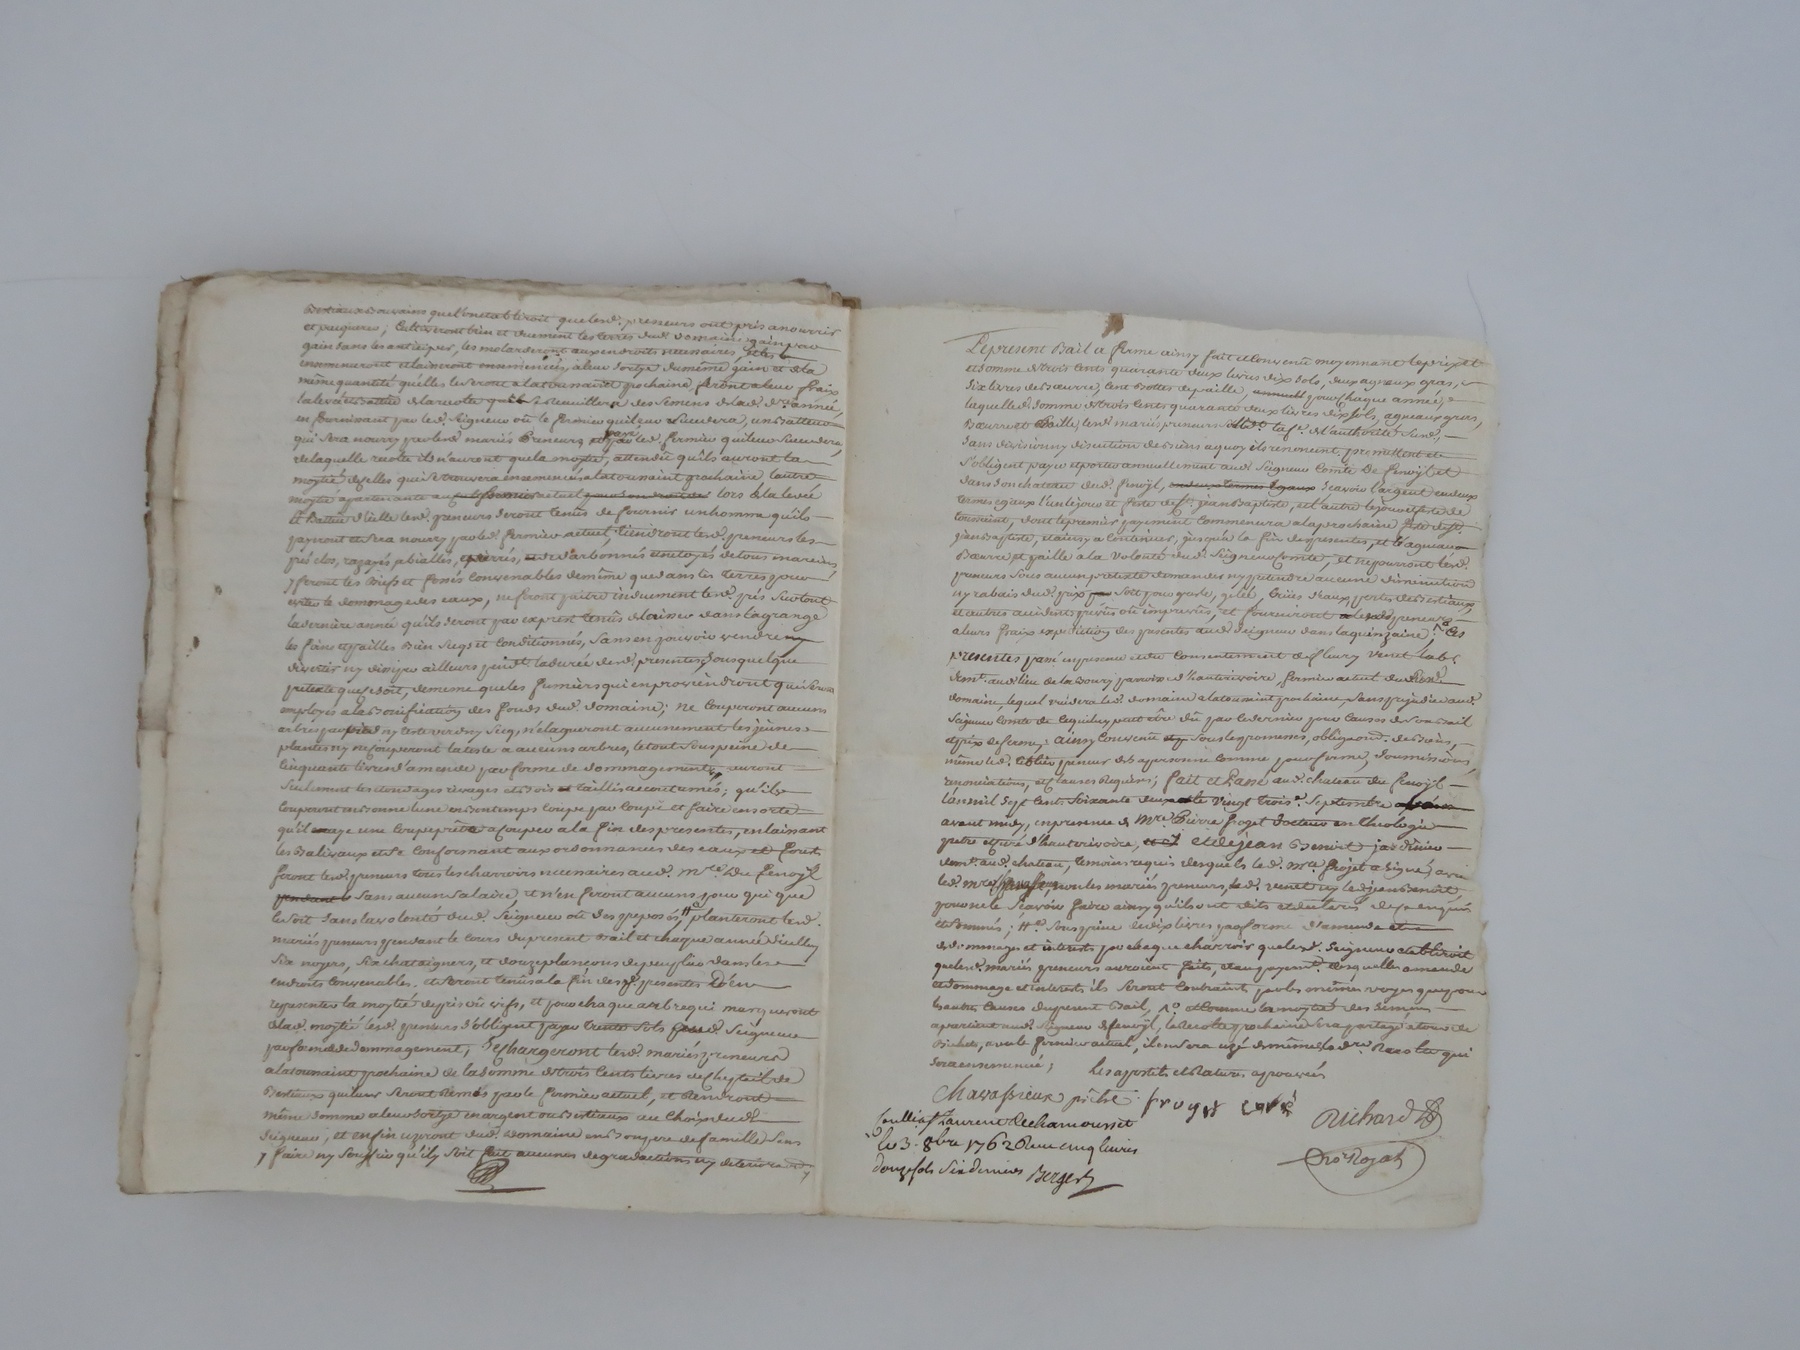 Bestiaux bovains que l'on etabliroit que lesd. preneurs ont pris a nourrir
et cultiveront bien et duement les terres dud. domaine
gain dans les anticiper, les molarderont aux endroits necessaires,
ensemenceront et laisseront ensemencées a leur sortye du même gain et de la
même quantité qu'elles le seront a la toussaint prochaine, feront a leur fraix
la levée de la recolte qui se receuillera des semences de lad. dre. année,
en fournissant par led. Seigneur ou le fermier qui leur succedera, un batteur
qui sera nourry par lesd. mariés preneurs et par led. fermier qui leur succedera,
de laquelle recolte ils n'auront que la moytié, attendû qu'ils auront la
moytié de celles qui se trouvera ensemencée a la toussaint prochaine l'autre
moytié apartenante au fermier actuel lors de la levée
et battue d'icelle lesd. preneurs seront tenûs de fournir un homme qu'ils
payront et sera nourry par led. fermier actuel, tiendront lesd. preneurs les
prés clos, razayés, et netoyés de tous
y feront les biefs et fossés convenables de même que dans les terres pour
eviter le dommage des eaux, ne feront paitre induement lesd. prés surtout
la dernière année qu'ils seront par exprest tenûs de laisser dans la grange
les foins et pailles bien secqs et conditionnés, sans en pouvoir vendre ny
divertir ny divisser ailleurs pendt. la durée desd. presentes, sous quelque
pretexte que ce soit, de meme que les fumiers qui en proviendront qui seront
employés a la bonification des fonds dud. domaine; ne couperont aucuns
arbres par pied ny teste verd ny secq, n'élagueront aucunement les jeunes
plantes ny ne couperont la teste a aucuns arbres, le tout sous peine de
cinquante livres d'amende par forme de dommagements, auront
seulement les tondages rivages et bois taillis accoutumés; qu'ils
couperont en bonne lune en bon temps coupe par coupe et faire en sorte
qu'il y aye une coupe prête a couper a la fin des presentes, en laissant
les balivaux et se conformant aux ordonnances des eaux et forets
feront lesd. preneurs tous les charrois necessaires aud. Mre. du fenoÿl
sans aucun salaire, et n'en feront aucuns pour qui que
ce soit sans la volonté dud. Seigneur ou des preposés, planteront lesd.
mariés preneurs pendant le cours du present bail et chaque année d'icelluy
six noyers, six chataigners, et douze plançons de peuplier dans les
endroits convenables, et seront tenûs a la fin des presentes d'en
representer la moytié de pris ou vifs, et pour chaque arbre qui manqueront
de lad. moytié lesd. preneurs s'obligent payer trente sols aud. Seigneur
par forme de dommagement, se chargeront lesd. mariés preneurs
a la toussaint prochaine de la somme de trois cents livres de cheptail de
bestiaux qui leur seront remis par le fermier actuel, et rendront
même somme a leur sortye en argent ou bestiaux au choix dud.
Seigneur, et enfin useront dud. domaine en bons pere de famille sans
y faire ny souffrir qu'il y soit fait aucunes degradations ny deteriorations
Le present bail a ferme ainsy fait et convenû moyennant le prix et
et somme de trois cents quarante deux livres dix sols, deux agneaux gras,
dix livres de Bœurre, cent bottes de paille, pour chaque année;
laquelle d. somme de trois cents quarante deux livres dix sols, agneaux gras,
Bœurre et paille, lesd. mariés preneurs solidt. la fe. de l'authorité susd.,
sans division ny discution de biens a quoy ils renoncent, promettent et
s'obligent payer et porter annuellement aud. Seigneur Comte de fenoÿl et
dans son chateau dud. fenoÿl, scavoir l'argent en deux
termes egaux l'un le jour et feste de st. jean Baptiste, et l'autre le jour et feste de
toussaint, dont le premier payement commencera a la prochaine feste de st.
jean Baptiste, et ainsy a continuer, jusqu'a la fin des presentes, et l'agneau
Bœurre et paille a la volonté dud. Seigneur Comte, et ne pourront lesd.
preneurs sous aucun pretexte demander ny pretendre aucune diminution
ny rabais dud. prix soit pour gresle, gelée, crües d'eaux, pertes de bestiaux,
et autres accidents prévûs ou imprevûs, et fourniront lesd. preneurs
a leurs fraix expedition des presentes aud. Seigneur dans la quinzaine; Ces
presentes passé en presence et du consentement de fleury Venet lab.
demt. aud. lieu de la boury paroisse d'hauterivoire, fermier actuel du susd.
domaine, lequel vuidera led. domaine a la toussaint prochaine, sans prejudice aud.
Seigneur Comte de ce qui luy peut être dû par ce dernier pour causes de son bail
et prix de ferme; ainsy convenû sous les promesses, obligaons. de biens,
même led. preneur de sa personne comme pour ferme, soumissions,
renonciations, et clauses requises; fait et Passé aud. chateau du fenoÿl
l'an mil sept cents soixante deux et le vingt troise. Septembre
avant midy, en presence de Mre. Pierre froget docteur en theologie
pretre et curé d'hauterivoire, et de jean Benoist jardinier
demt. aud. chateau, temoins requis desquels led. Mre. froget a signé, avec
led. Mre. Chavassieux, non les mariés preneurs, led. venet ny led. jean benoist
pour ne le scavoir faire ainsy qu'ils ont dits et declarés de ce enquis
et sommés; #o. sous peine de dix livres par forme d'amende et
de dommages et interets par chaque charroir que led. Seigneur etabliroit
que lesd. mariés preneurs auroient faits, et au payemt. desquelles amende
et dommage et interets ils seront contraints par les mêmes voyes que pour
les autres causes du present bail, o. et comme la moytié des semens
apartient aud. Seigneur de fenoÿl, la recolte prochaine sera partagé a tour de
bichets, avec le fermier actuel, il en sera uzé de même la dre. Recolte qui
sera ensemencée; Les apostils et Ratures aprouvées
Chavassieux prêtre froget curé Richard
Controllé a St Laurent de chamousset
le 3. 8bre 1762 Reçu cinq livres
douze sols six deniers Berger